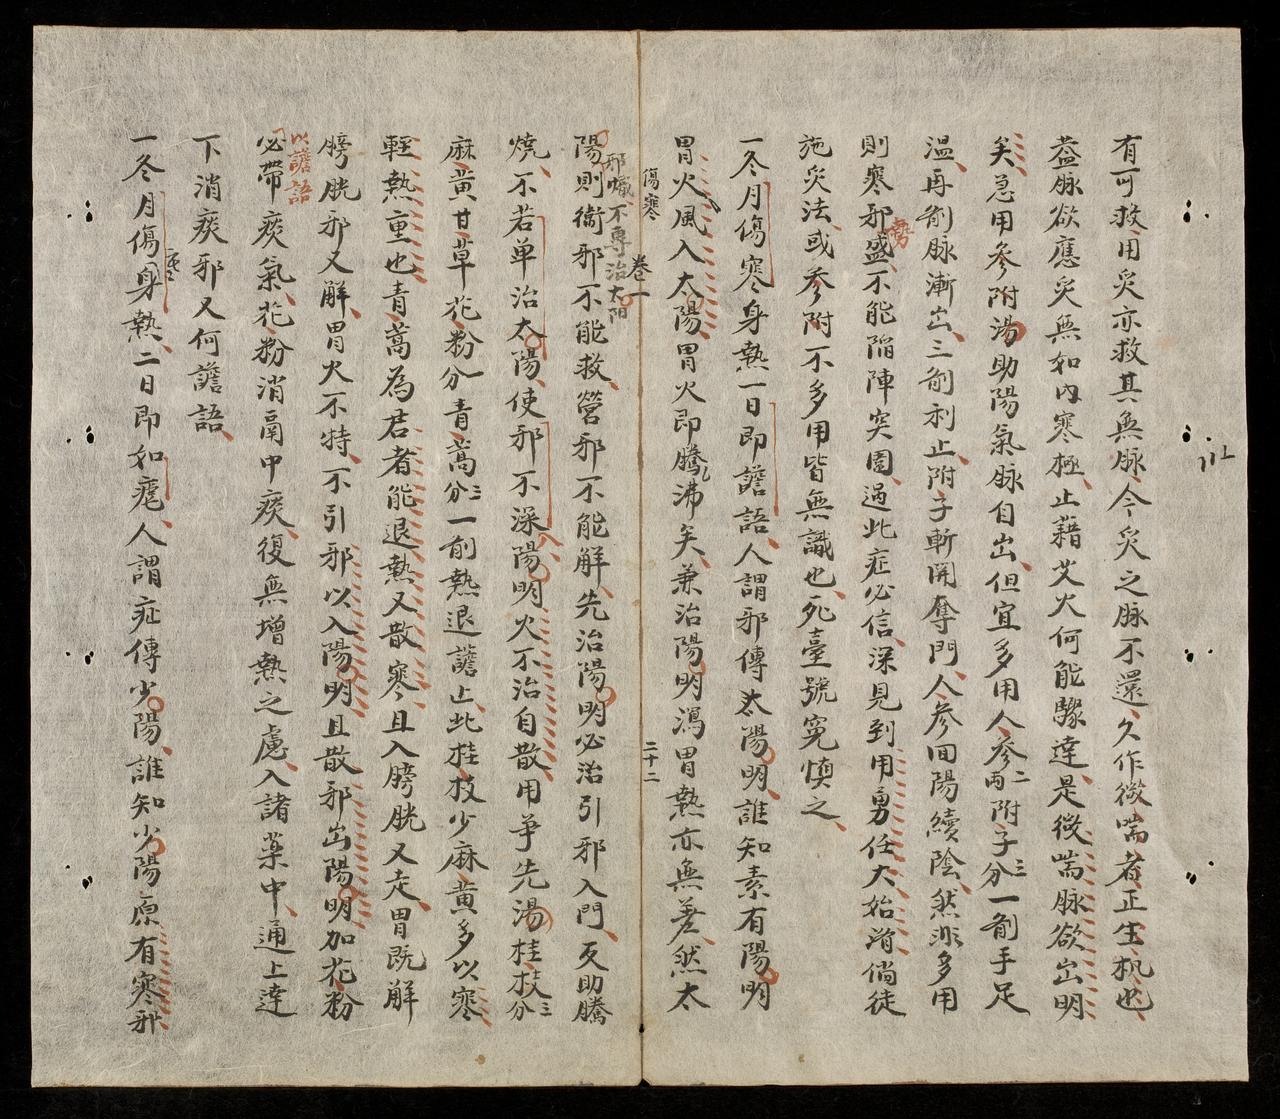 有可救用灸亦救其無脉今灸之脉不還久作微喘者正生机也
葢脉欲應灸無如內寒極止藉艾火何能驟達是微喘脉欲出明
矣急用參附湯助陽氣脉自出但宜多用人參二両附子三分一劑手足
温再劑脉漸出三劑利止附子斬関奪門人參回陽續陰然非多用
則寒邪勢盛不能陷陣突圍遇此症必信深見到用勇任大始濟倘徒
施灸法或參附不多用皆無識也死臺號寃慎之
一冬月傷寒身熱一日即譫語人謂邪傳太陽明誰知素有陽明
胃火風入太陽胃火即騰沸矣兼治陽明瀉胃熱亦無差然太
傷寒
卷一
二十二
邪熾不專治太陽
陽則衞邪不能救營邪不能解先治陽明必治引邪入門反助騰
燒不若单治太陽使邪不深入陽明火不治自散用争先湯桂枝三分
麻黄甘草花粉一分青蒿三分一劑熱退譫止此桂枝少麻黄多以寒
輕熱重也青蒿為君者能退熱又散寒且入膀胱又走胃既解
膀胱邪又解胃火不特不引邪以入陽明且散邪出陽明加花粉
以譫語
必帶痰氣花粉消鬲中痰復無增熱之慮入諸藥中通上達
下消痰邪又何譫語
一冬月傷寒身熱二日即如瘧人謂症傳少陽誰知少陽原有寒邪